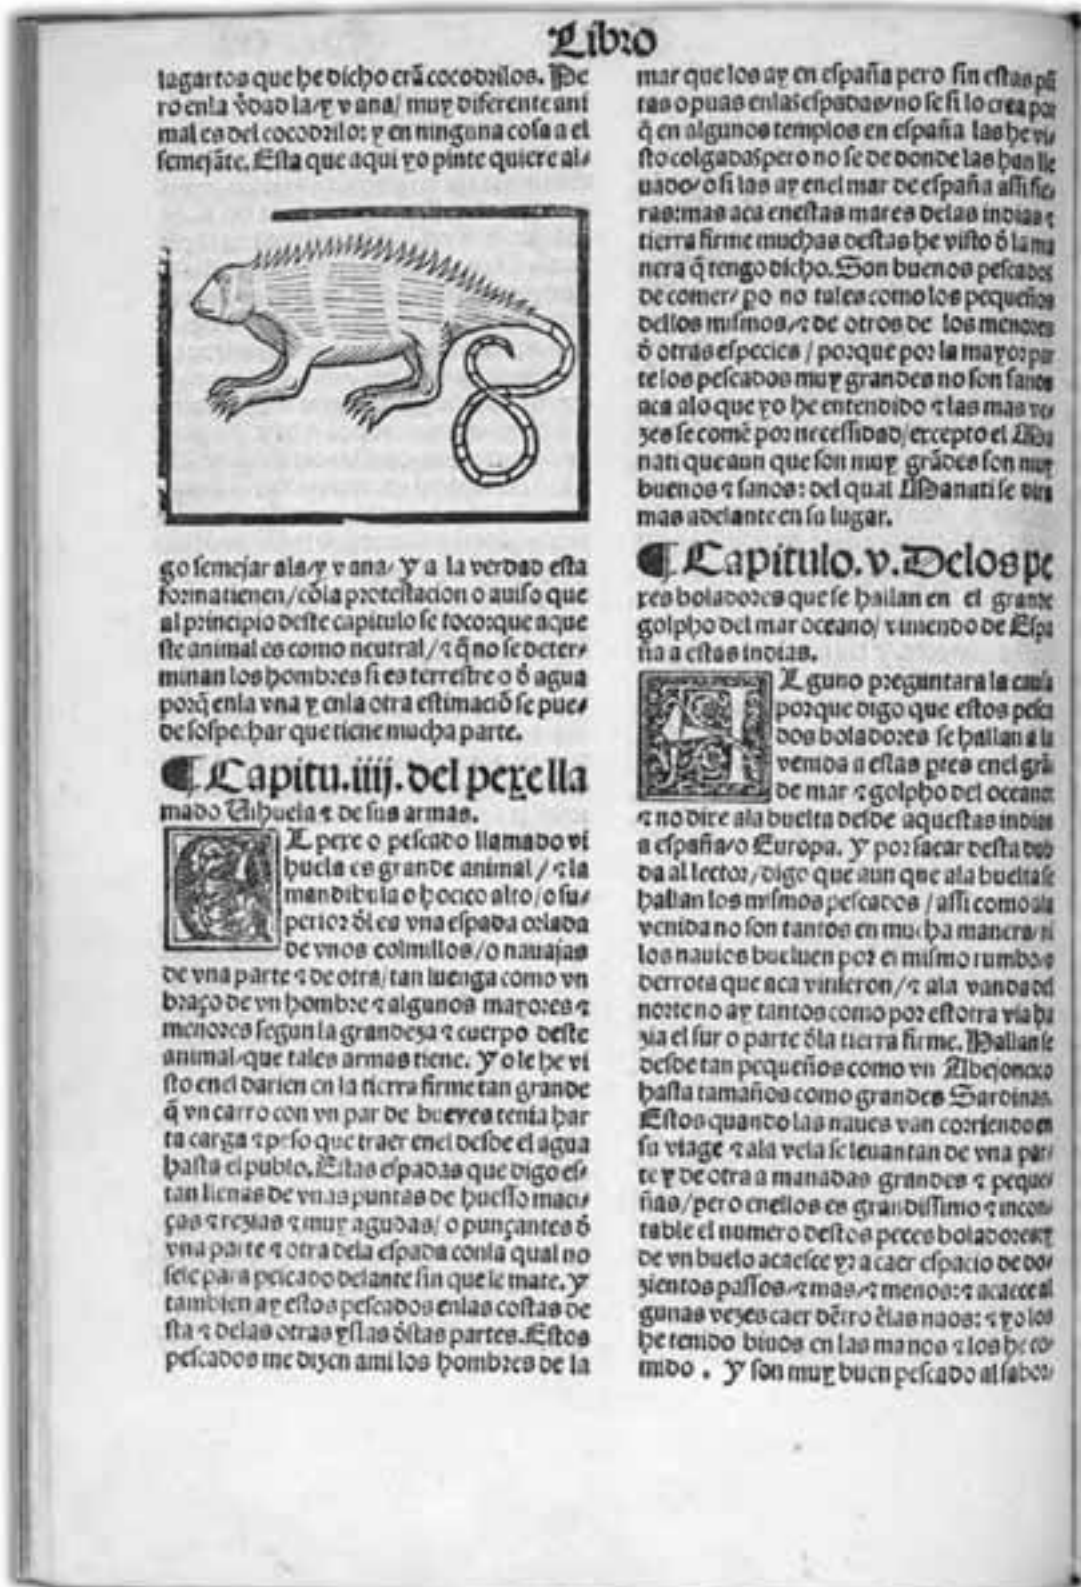 Libro
lagartos que he dicho erã cocodrilos. Pe
ro enla v̉dad la/y v ana/ muy diferente ani
mal es del cocodrilo: y en ninguna cosa a el
semejãte. Esta que aqui yo pinte quiere al/
go semejar ala/y v ana/ y a la verdad esta
forma tienen/cõla protestacion o auiso que
al principio deste capitulo se toco:que aque
ste animal es como neutral/⁊ q̃ no se deter/
minan los hombres si es terrestre o d̓ agua
porq̃ enla vna y enla otra estimaciõ se pue/
de sospechar que tiene mucha parte.
¶ Capitu.iiij. del pexe lla
mado Uihuela ⁊ de sus armas.
EL pexe o pescado llamado vi
huela es grande animal/⁊ la
mandibula o hocico alto/o su/
perior d̓l es vna espada orlada
de vnos colmillos/o nauajas
de vna parte ⁊ de otra/tan luenga como vn
braço de vn hombre ⁊ algunos mayores ⁊
menores segun la grandeza ⁊ cuerpo deste
animal/que tales armas tiene. Yo le he vi
sto enel darien en la tierra firme tan grande
q̃ vn carro con vn par de bueyes tenia har
ta carga ⁊ peso que traer enel desde el agua
hasta el publo. Estas espadas que digo es/
tan llenas de vnas puntas de huesso maci/
ças ⁊ rezias ⁊ muy agudas/ o punçantes d̓
vna parte ⁊ otra dela espada conla qual no
sele para pescado delante sin que le mate. Y
tambien ay estos pescados enlas costas de
sta ⁊ delas otras yslas d̓stas partes. Estos
pescados me dizen ami los hombres de la
mar que los ay en españa pero sin estas pũ
tas o puas enlas espadas/no se si lo crea por
q̃ en algunos templos en españa las he vi/
sto colgadas/pero no se de donde las han lle
uado/o si las ay enel mar de españa assi fie/
ras:mas aca enestas mares delas indias ⁊
tierra firme muchas destas he visto d̓ la ma
nera q̃ tengo dicho. Son buenos pescados
de comer/ po no tales como los pequeños
dellos mismos/⁊ de otros de los menores
d̓ otras especies / porque por la mayor par
te los pescados muy grandes no son sanos
aca alo que yo he entendido ⁊ las mas ve/
zes se comẽ por necessidad/excepto el Ma
nati que aun que son muy grãdes son muy
buenos ⁊ sanos: del qual Manati se dira
mas adelante en su lugar.
¶ Capitulo.v.Delos pe
xes boladores que se hallan en el grande
golpho del mar oceano/ viniendo de Espa
ña a estas indias.
ALguno preguntara la causa
porque digo que estos pesca
dos boladores se hallan a la
venida a estas ptes enel grã
de mar ⁊ golpho del oceano:
⁊ no dire ala buelta desde aquestas indias
a españa/o Europa. Y por sacar desta dub
da al lector/digo que aun que ala buelta se
hallan los mismos pescados / assi como ala
venida no son tantos en mucha manera/ni
los nauios bueluen por el mismo rumbo o
derrota que aca vinieron/⁊ ala vanda del
norte no ay tantos como por estotra via ha
zia el sur o parte d̓la tierra firme. Hallanse
desde tan pequeños como vn Abejonzico
hasta tamaños como grandes Sardinas.
Estos quando las naues van corriendo en
su viage ⁊ ala vela se leuantan de vna par/
te y de otra a manadas grandes ⁊ peque/
ñas/pero enellos es grandissimo ⁊ incon/
table el numero destos peces boladores: y
de vn buelo acaesce yr a caer espacio de do/
zientos passos/⁊ mas/⁊ menos: ⁊ acaece al
gunas vezes caer dẽtro ẽlas naos: ⁊ yo los
he tenido biuos en las manos ⁊ los he co/
mido . Y son muy buen pescado al sabor/